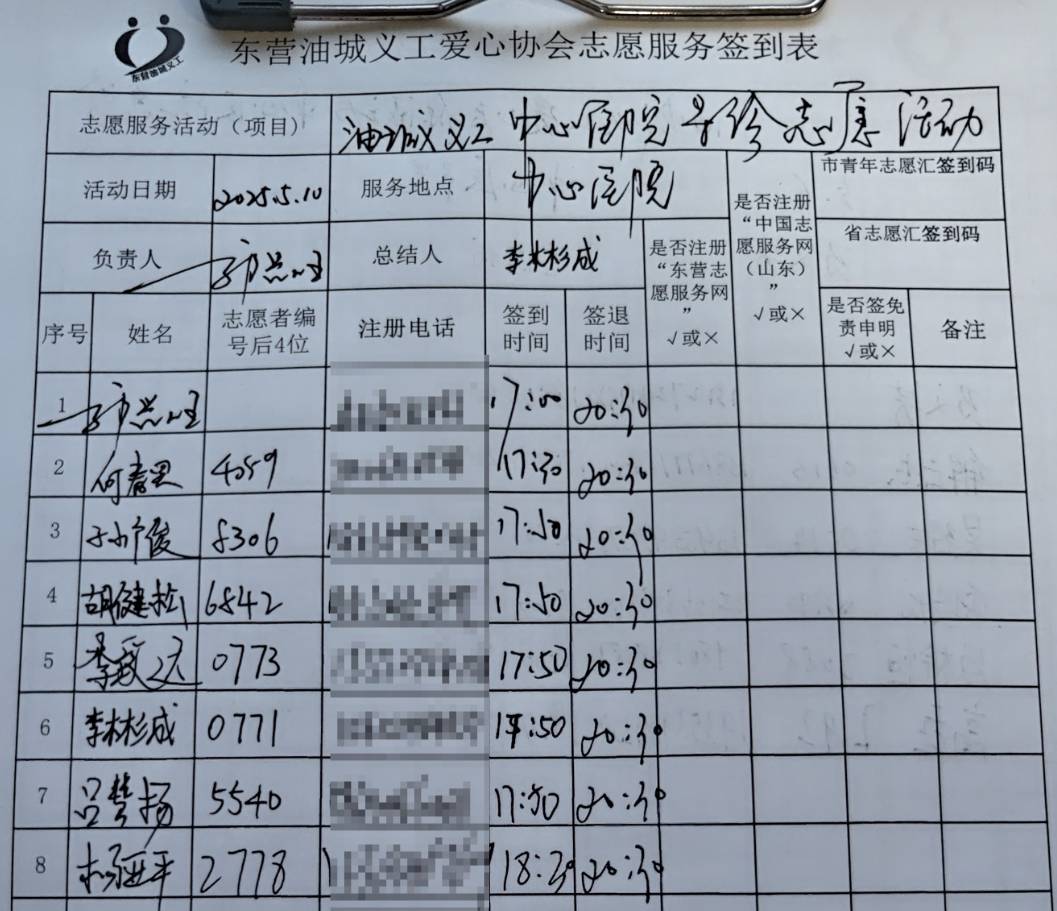 东营油城义工
东营油城义工爱心协会志愿服务签到表
志愿服务活动（项目） 油城义工 中心医院导诊志愿活动
活动日期 2025.5.10 服务地点 中心医院 市青年志愿汇签到码
负责人 总结人 李林杉成 省志愿汇签到码
序号 姓名 志愿者编号后4位 注册电话 签到时间 签退时间 是否注册“东营志愿服务网” √或× 是否注册“中国志愿服务网（山东）” √或× 是否签免责申明 √或× 备注
1 17:00 20:30
2 何春思 4059 17:30 20:30
3 8306 17:50 20:30
4 胡健松 6842 17:50 20:30
5 0773 17:50 20:30
6 李林杉成 0771 17:50 20:30
7 吕梦扬 5540 17:50 20:30
8 杨亚平 2778 18:30 20:30